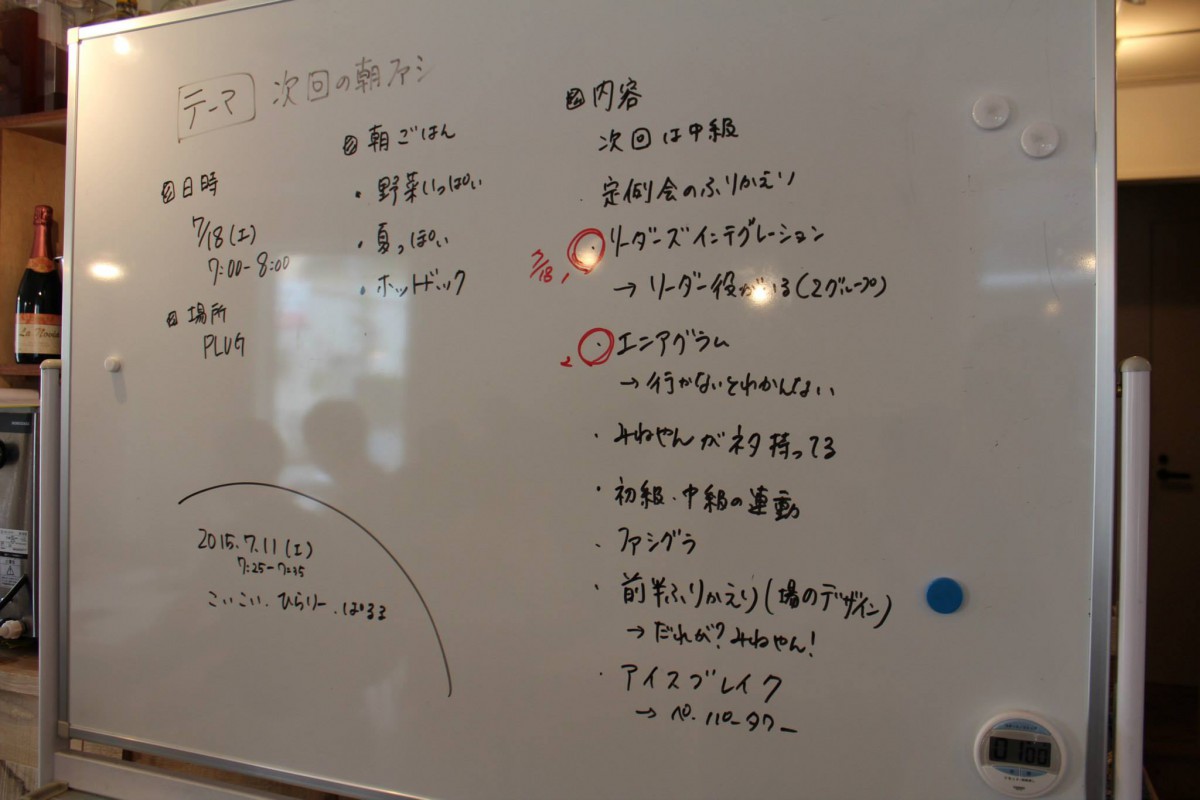 テーマ 次回の朝ファシ
日時
7/18(土)
7:00-8:00
場所
PLUG
朝ごはん
・野菜いっぱい
・夏っぽい
・ホットドック
内容
次回は中級
・定例会のふりかえり
7/18, 1 ・リーダーズインテグレーション
→リーダー役がいる(2グループ)
2 ・エニアグラム
→行かないとわかんない
・みねやんがネタ持ってる
・初級・中級の連動
・ファシグラ
・前半ふりかえり(場のデザイン)
→だれが?みねやん!
・アイスブレイク
→ペーパータワー
2015.7.11(土)
7:25-7:35
こいこい.ひらりー.ぱるる
0100